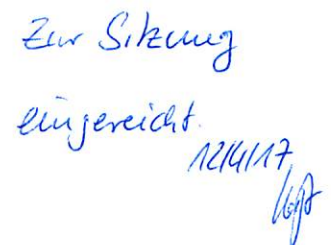 Zur Sitzung
eingereicht.
12/4/17